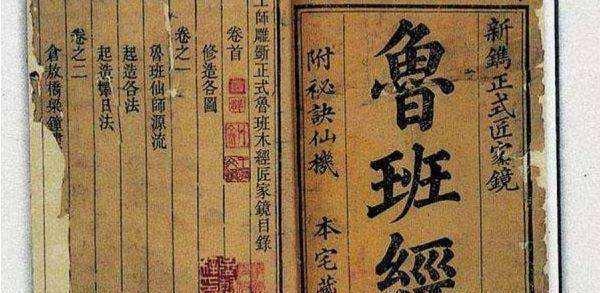 新鐫正式匠家鏡
魯班經
附祕訣仙機 本宅藏
工師雕斵正式魯班木經匠家鏡目錄
卷首
修造各圖
卷之一
魯班仙師源流
起造各法
起造日法
卷之二
倉敖橋梁鐘